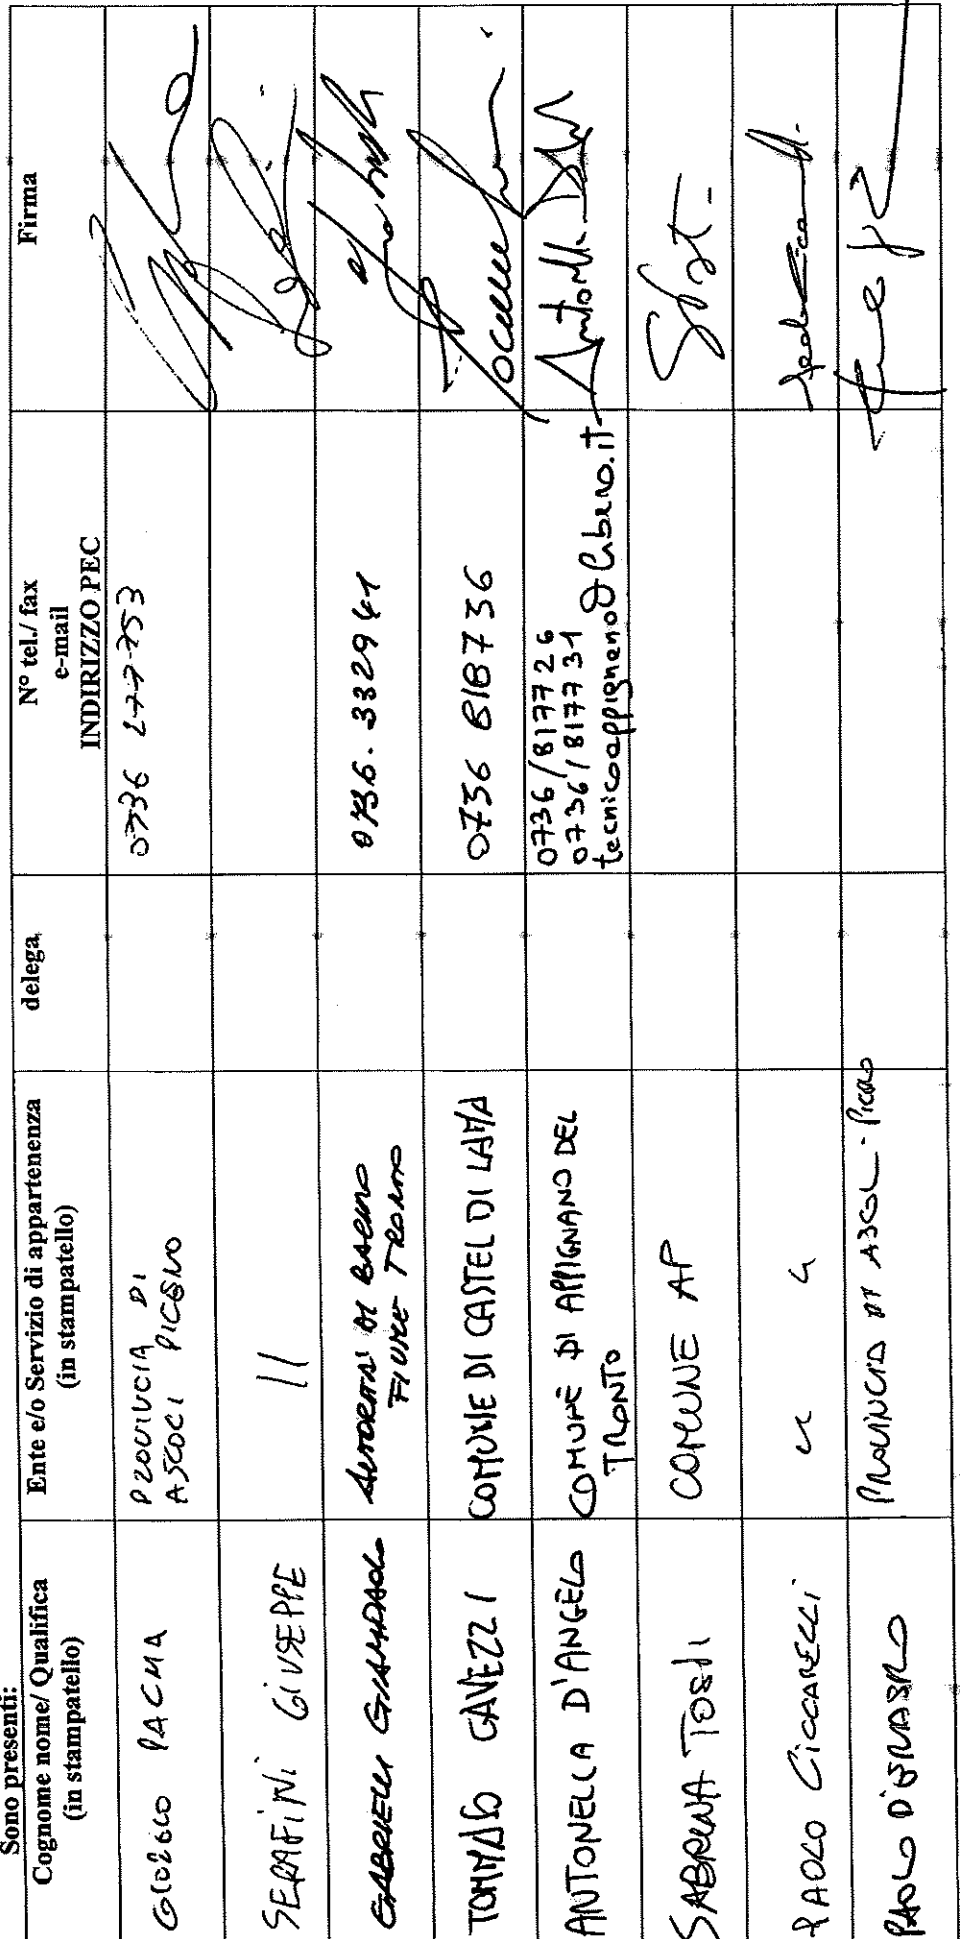 Sono presenti:
Cognome nome/ Qualifica
(in stampatello)
Ente e/o Servizio di appartenenza
(in stampatello)
delega
N° tel./ fax
e-mail
INDIRIZZO PEC
Firma
GIORGIO PALMA
PROVINCIA DI
ASCOLI PICENO
0736 277753
SERAFINI GIUSEPPE
11
GABRIELLI GIAMPAOLO
AUTORITA' DI BACINO
FIUME TRONTO
0736. 332941
TOMMASO CAVEZZI
COMUNE DI CASTEL DI LAMA
0736 818736
ANTONELLA D'ANGELO
COMUNE DI APPIGNANO DEL
TRONTO
0736/817726
0736/817731
tecnicoappignano@libero.it
Antonella
SABRINA TOSTI
COMUNE AP
PAOLO CICCARELLI
" "
PAOLO
PROVINCIA DI ASCOLI PICENO